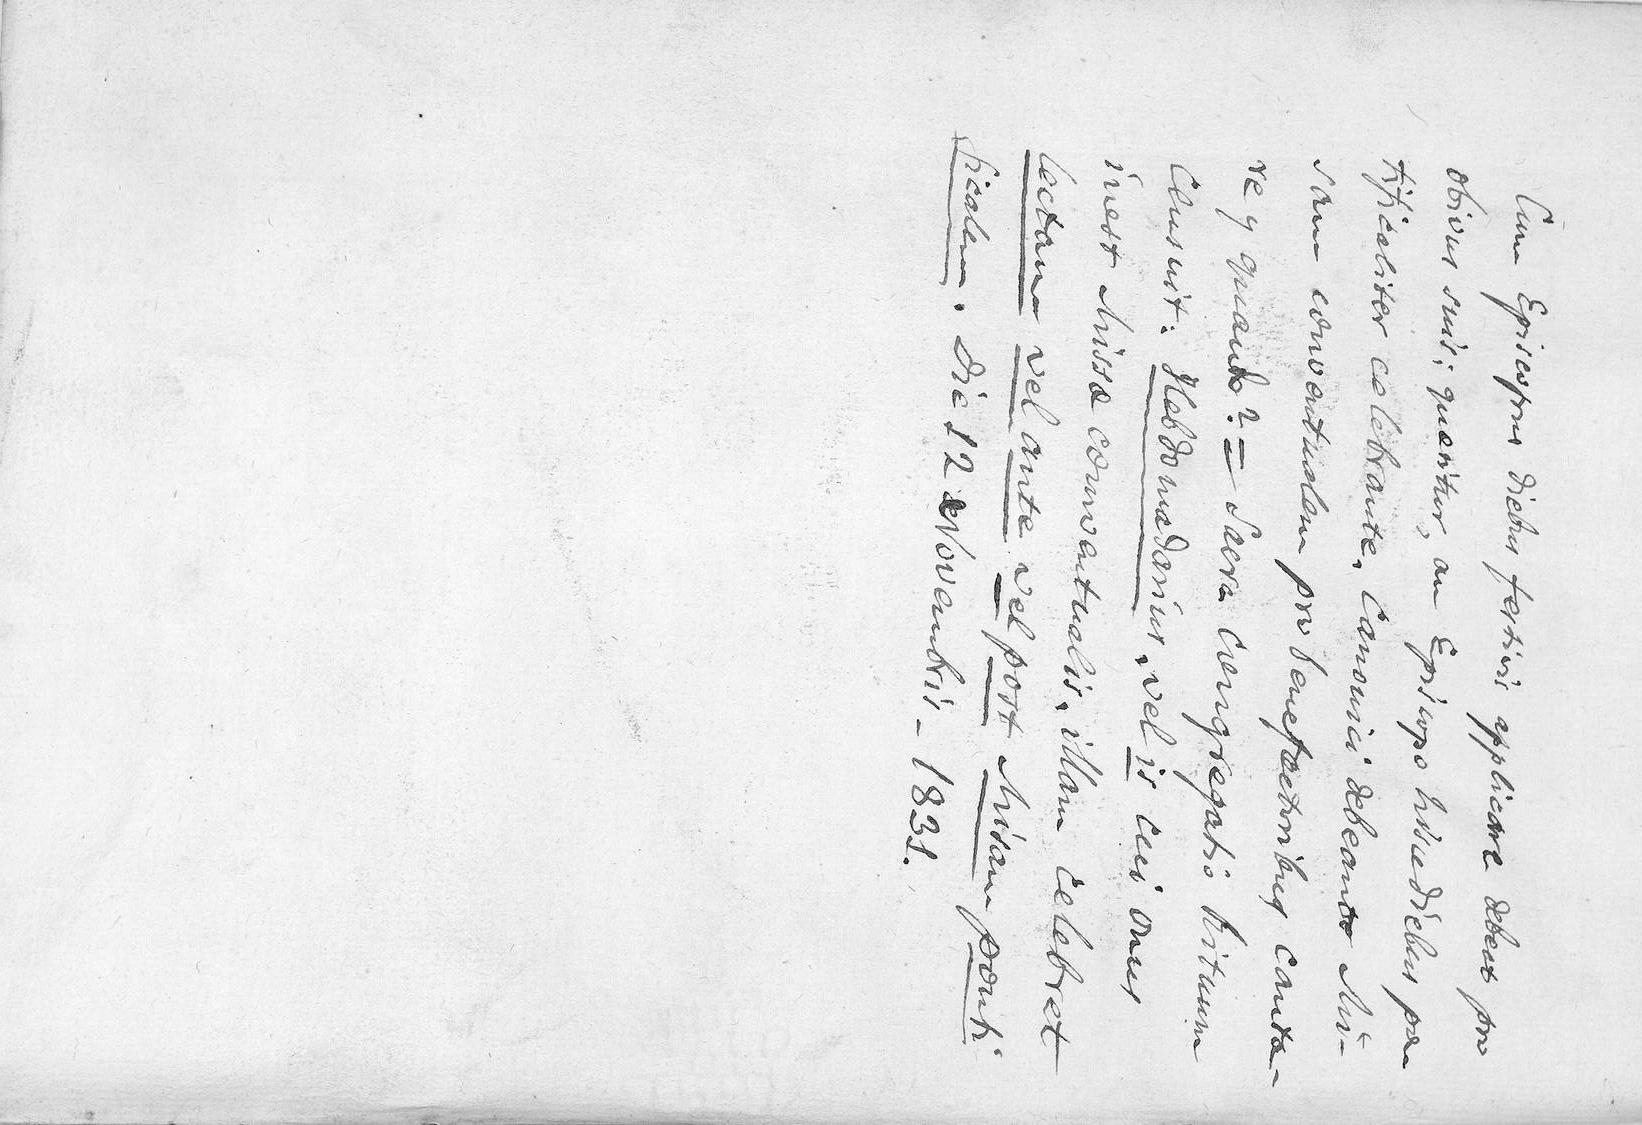 Cum Episcopus diebus festivis applicare debeat pro
ovibus suis; quaeritur, an Episcopo hisce diebus pon
tificaliter celebrante, Canonici debeant Mis-
sam conventualem pro benefactoribus canta-
re, & quando? = Sacra Congregatio Rituum
Censuit: Hebdomadarius, vel is cui onus
inest Missae conventualis, illam celebret
lectam vel ante vel post Missam ponti
ficalem. Die 12 Novembris - 1831.